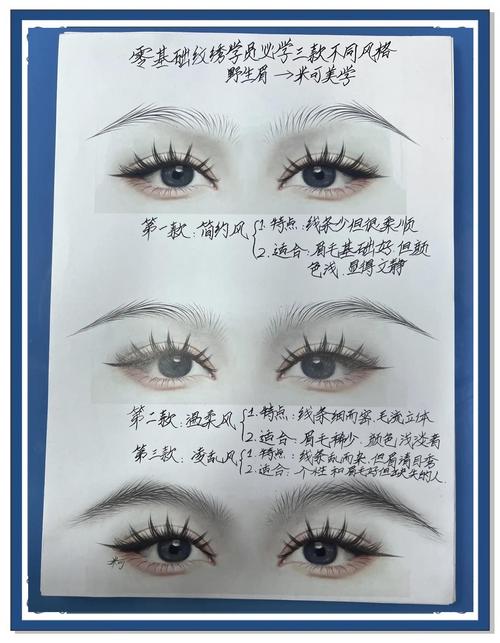 零基础纹绣学员必学三款不同风格
野生眉→米可美学
第一款:简约风{1.特点:线条少但很柔顺
2.适合:眉毛基础好.但颜
色浅.显得文静
第二款:温柔风{1.特点:线条细而密.毛流立体
2.适合:眉毛稀少.颜色浅淡者
第三款:凌乱风{1.特点:线条乱而杂.但眉清目秀
2.适合:个性和眉毛好但缺失的人
米可